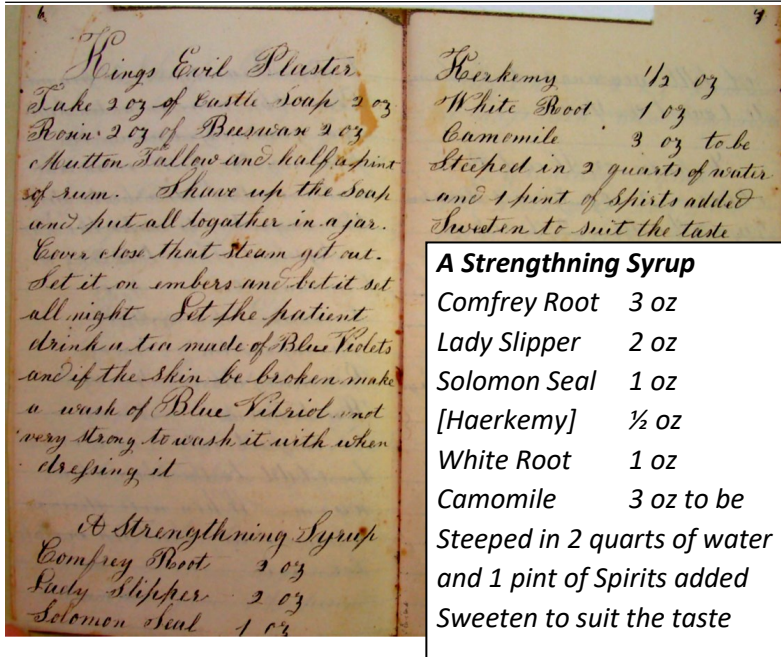 6
Kings Evil Plaster
Take 2 oz of Castle Soap 2 oz
Rosin 2 oz of Beeswax 2 oz
Mutton Tallow and half a pint
of rum. Shave up the Soap
and put all togather in a jar.
Cover close that steam get out.
Set it on embers and let it set
all night Let the patient
drink a tea made of Blue Violets
and if the skin be broken make
a wash of Blue Vitriol not
very strong to wash it with when
dressing it
A Strengthning Syrup
Comfrey Root 3 oz
Lady Slipper 2 oz
Solomon Seal 1 oz
7
Herkemy 1/2 oz
White Root 1 oz
Camomile 3 oz to be
Steeped in 2 quarts of water
and 1 pint of Spirits added
Sweeten to suit the taste
A Strengthning Syrup
Comfrey Root 3 oz
Lady Slipper 2 oz
Solomon Seal 1 oz
[Haerkemy] ½ oz
White Root 1 oz
Camomile 3 oz to be
Steeped in 2 quarts of water
and 1 pint of Spirits added
Sweeten to suit the taste